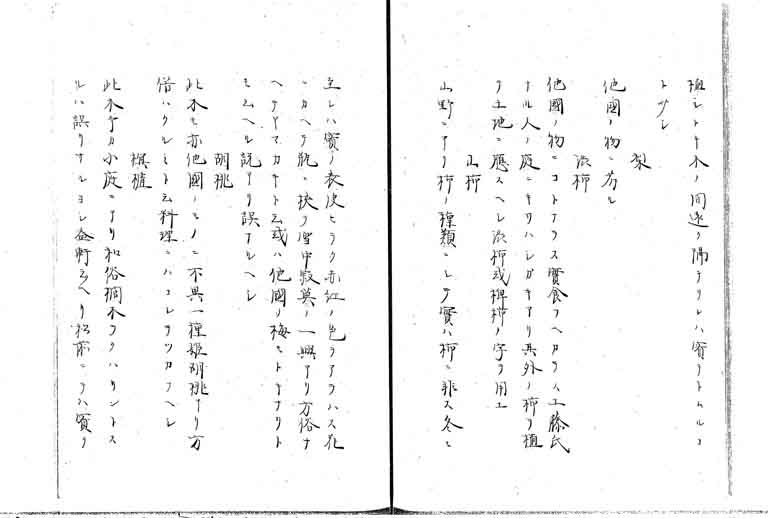 植シトキ木ノ間遠ク隔テサレハ實ヲトムルコ
トナシ
梨
他國ノ物ニ劣レ
澁柿
他國ノ物ニコトナラス實食フヘカラス工藤氏
ナル人ノ庭ニキサハシガキアリ其外ノ柿ヲ植
テ土地ニ應スヘシ澁柿或椑柿ノ字ヲ用ユ
山柿
山野ニアリ柿ノ種類ニシテ實ハ柿ニ非ス冬ニ
至レハ實ノ表皮ヒラク赤紅ノ色ヲアラハス花
ニカヘテ瓶ニ挾ク雪中寂莫ノ一興ナリ方俗ナ
ヘテヤマカキト云或ハ他國ノ梅モトキナリト
モ云ヘル説アリ誤ナルヘシ
胡桃
此木モ亦他國ノモノニ不異一種姫胡桃アリ方
俗ハクルミト云料理ニハコレヲツカフヘシ
榠樝
此木ケカ小庭ニアリ和俗榈木ヲクハリントス
ルハ誤リナルヨシ益軒云ヘリ松前ニテハ實ヲ